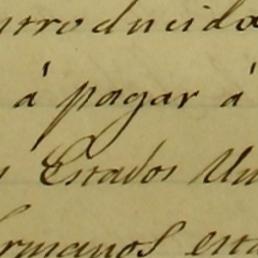 introducida
á pagar á
Estados Un
ermanos esta